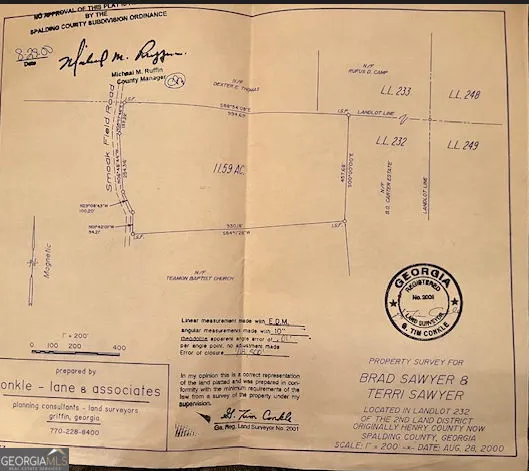 NO APPROVAL OF THIS PLAT IS
BY THE
SPALDING COUNTY SUBDIVISION ORDINANCE
8-29-00
Date
Micheal M. Ruffin
Micheal M. Ruffin
County Manager
Smoak Field Road
I.S.F.
N/F
DEXTER E. THOMAS
N/F
RUFUS D. CAMP
L.L. 233
L.L. 248
I.S.F.
LANDLOT LINE
L.L. 232
L.L. 249
11.59 AC.
N/F
B.O. CARTER ESTATE
LANDLOT LINE
100.20'
94.21'
I.S.F.
330.18'
I.S.F.
N/F
TEAMON BAPTIST CHURCH
Magnetic
1" = 200'
0 100 200 400
prepared by
onkle - lane & associates
planning consultants - land surveyors
griffin, georgia
770-228-8400
Linear measurement made with E.D.M.
angular measurement made with 10"
theodolite apparent angle error of .01"
per angle point, no adjustment made
Error of closure
In my opinion this is a correct representation
of the land platted and was prepared in con-
formity with the minimum requirements of the
law from a survey of the property under my
supervision.
G. Tim Conkle
Ga. Reg. Land Surveyor No. 2001
GEORGIA
REGISTERED
No. 2001
LAND SURVEYOR
G. TIM CONKLE
PROPERTY SURVEY FOR
BRAD SAWYER &
TERRI SAWYER
LOCATED IN LANDLOT 232
OF THE 2ND LAND DISTRICT
ORIGINALLY HENRY COUNTY NOW
SPALDING COUNTY, GEORGIA
SCALE: 1" = 200' -x- DATE: AUG. 28, 2000
GEORGIAMLS
REAL ESTATE SERVICES